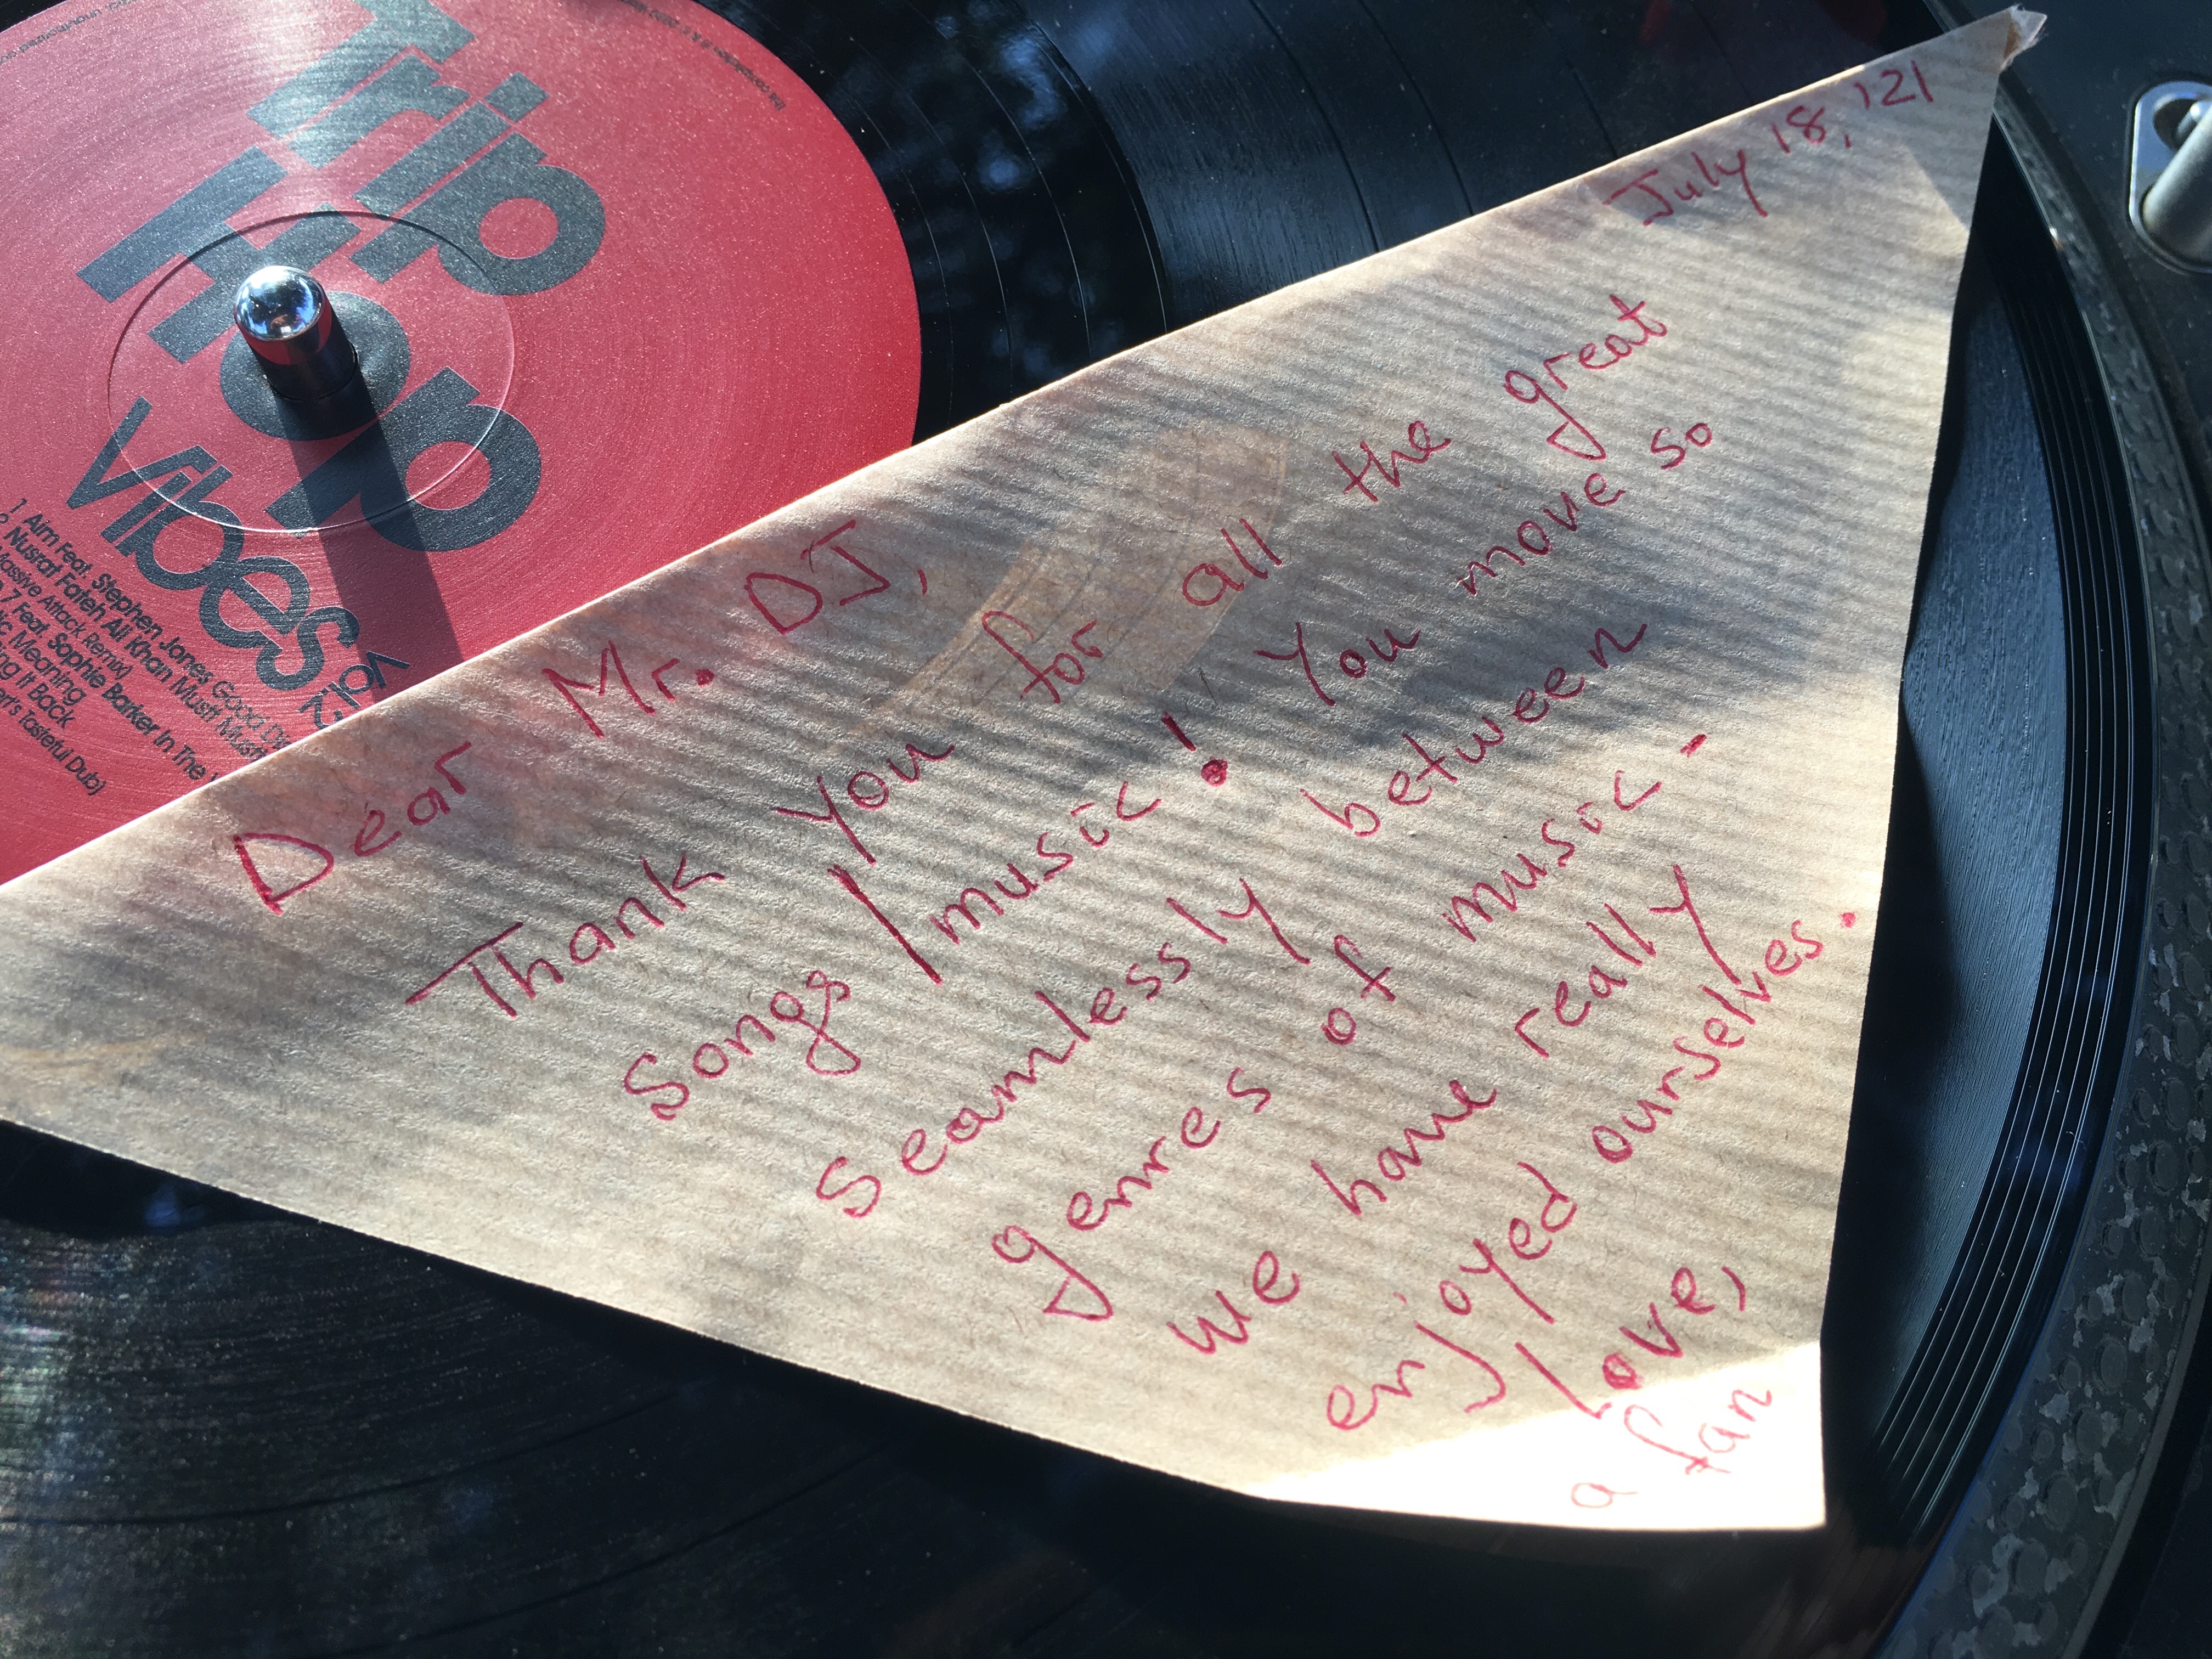 Trip
Hop
Vibes
Vol.2
1 Aim Feat. Stephen Jones Good Di
Nusrat Fateh Ali Khan Mustt Mustt
Massive Attack Remix)
7 Feat. Sophie Barker In The
Meaning
ing It Back
Tasteful Dub)
July 18, '21
Dear Mr. DJ,
Thank you for all the great
songs / music! You move so
seamlessly between
genres of music -
we have really
enjoyed ourselves.
Love,
a fan